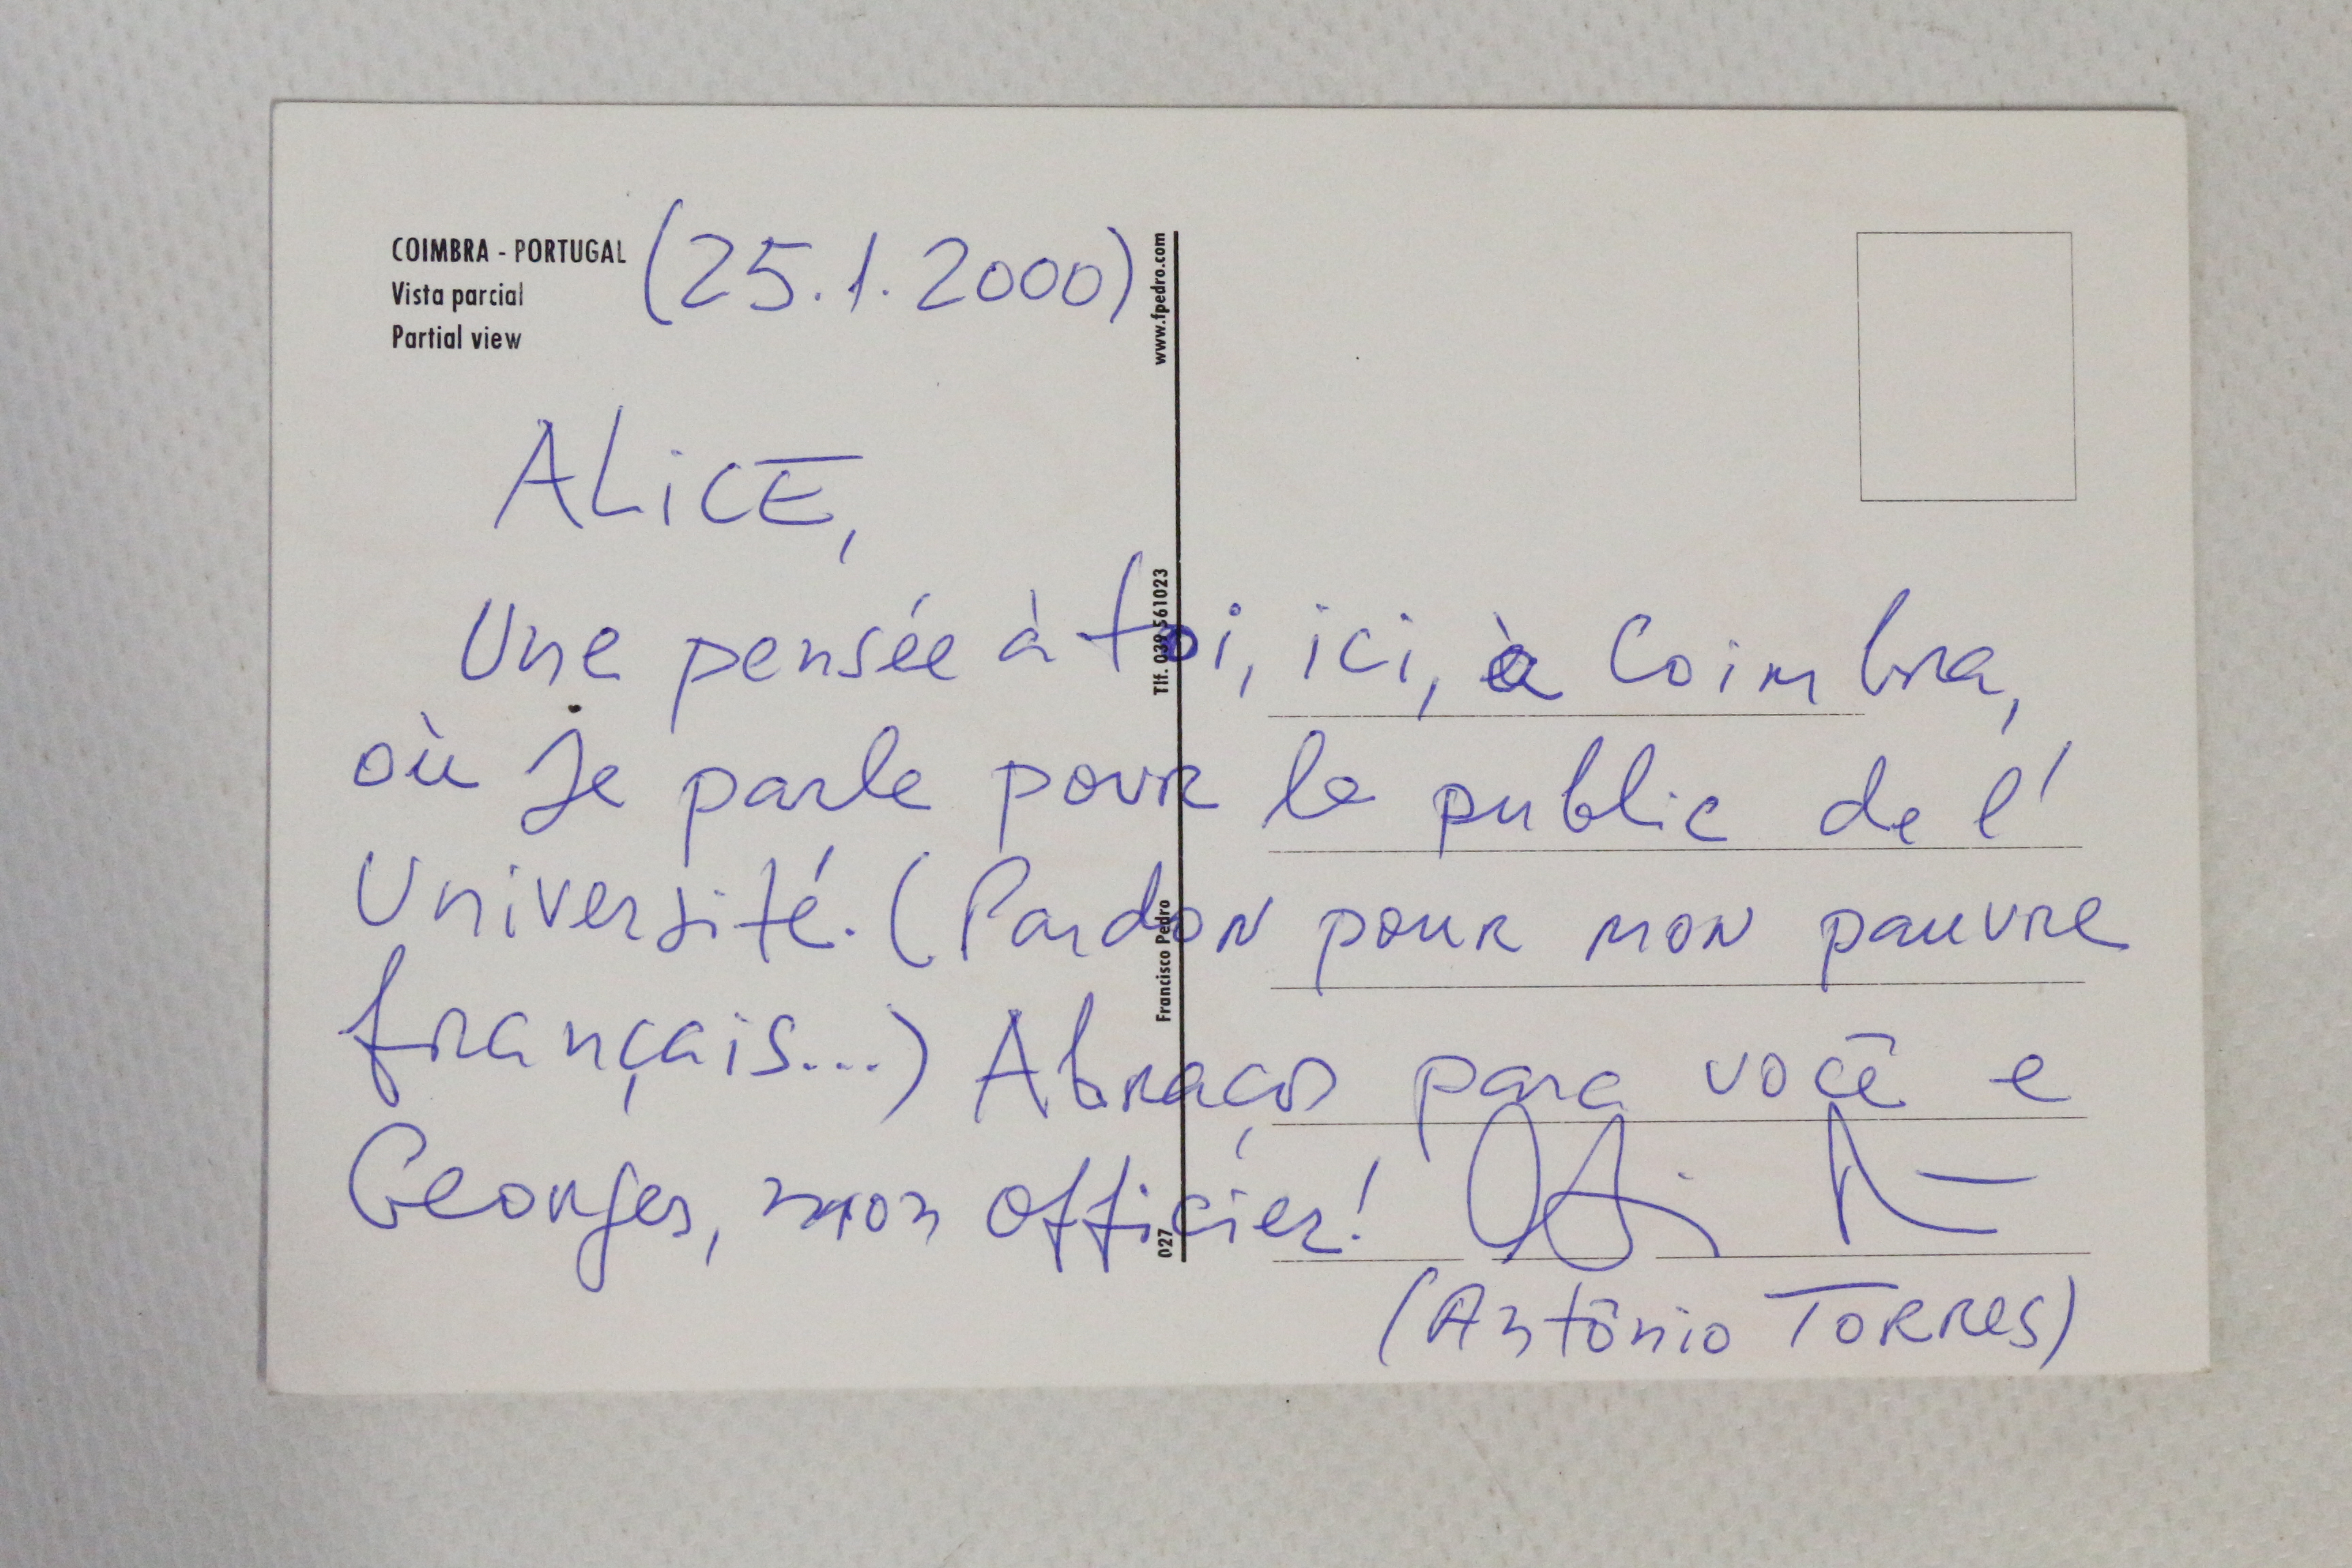 COIMBRA - PORTUGAL (25.1.2000)
Vista parcial
Partial view
ALiCE,
Une pensée à toi, ici, à Coimbra,
où Je parle pour le public de l'
Université. (Pardon pour mon pauvre
français...) Abraços para você e
Georges, mon officier!
(Antônio Torres)
www.fpedro.com
Tlf. 039 561023
Francisco Pedro
027